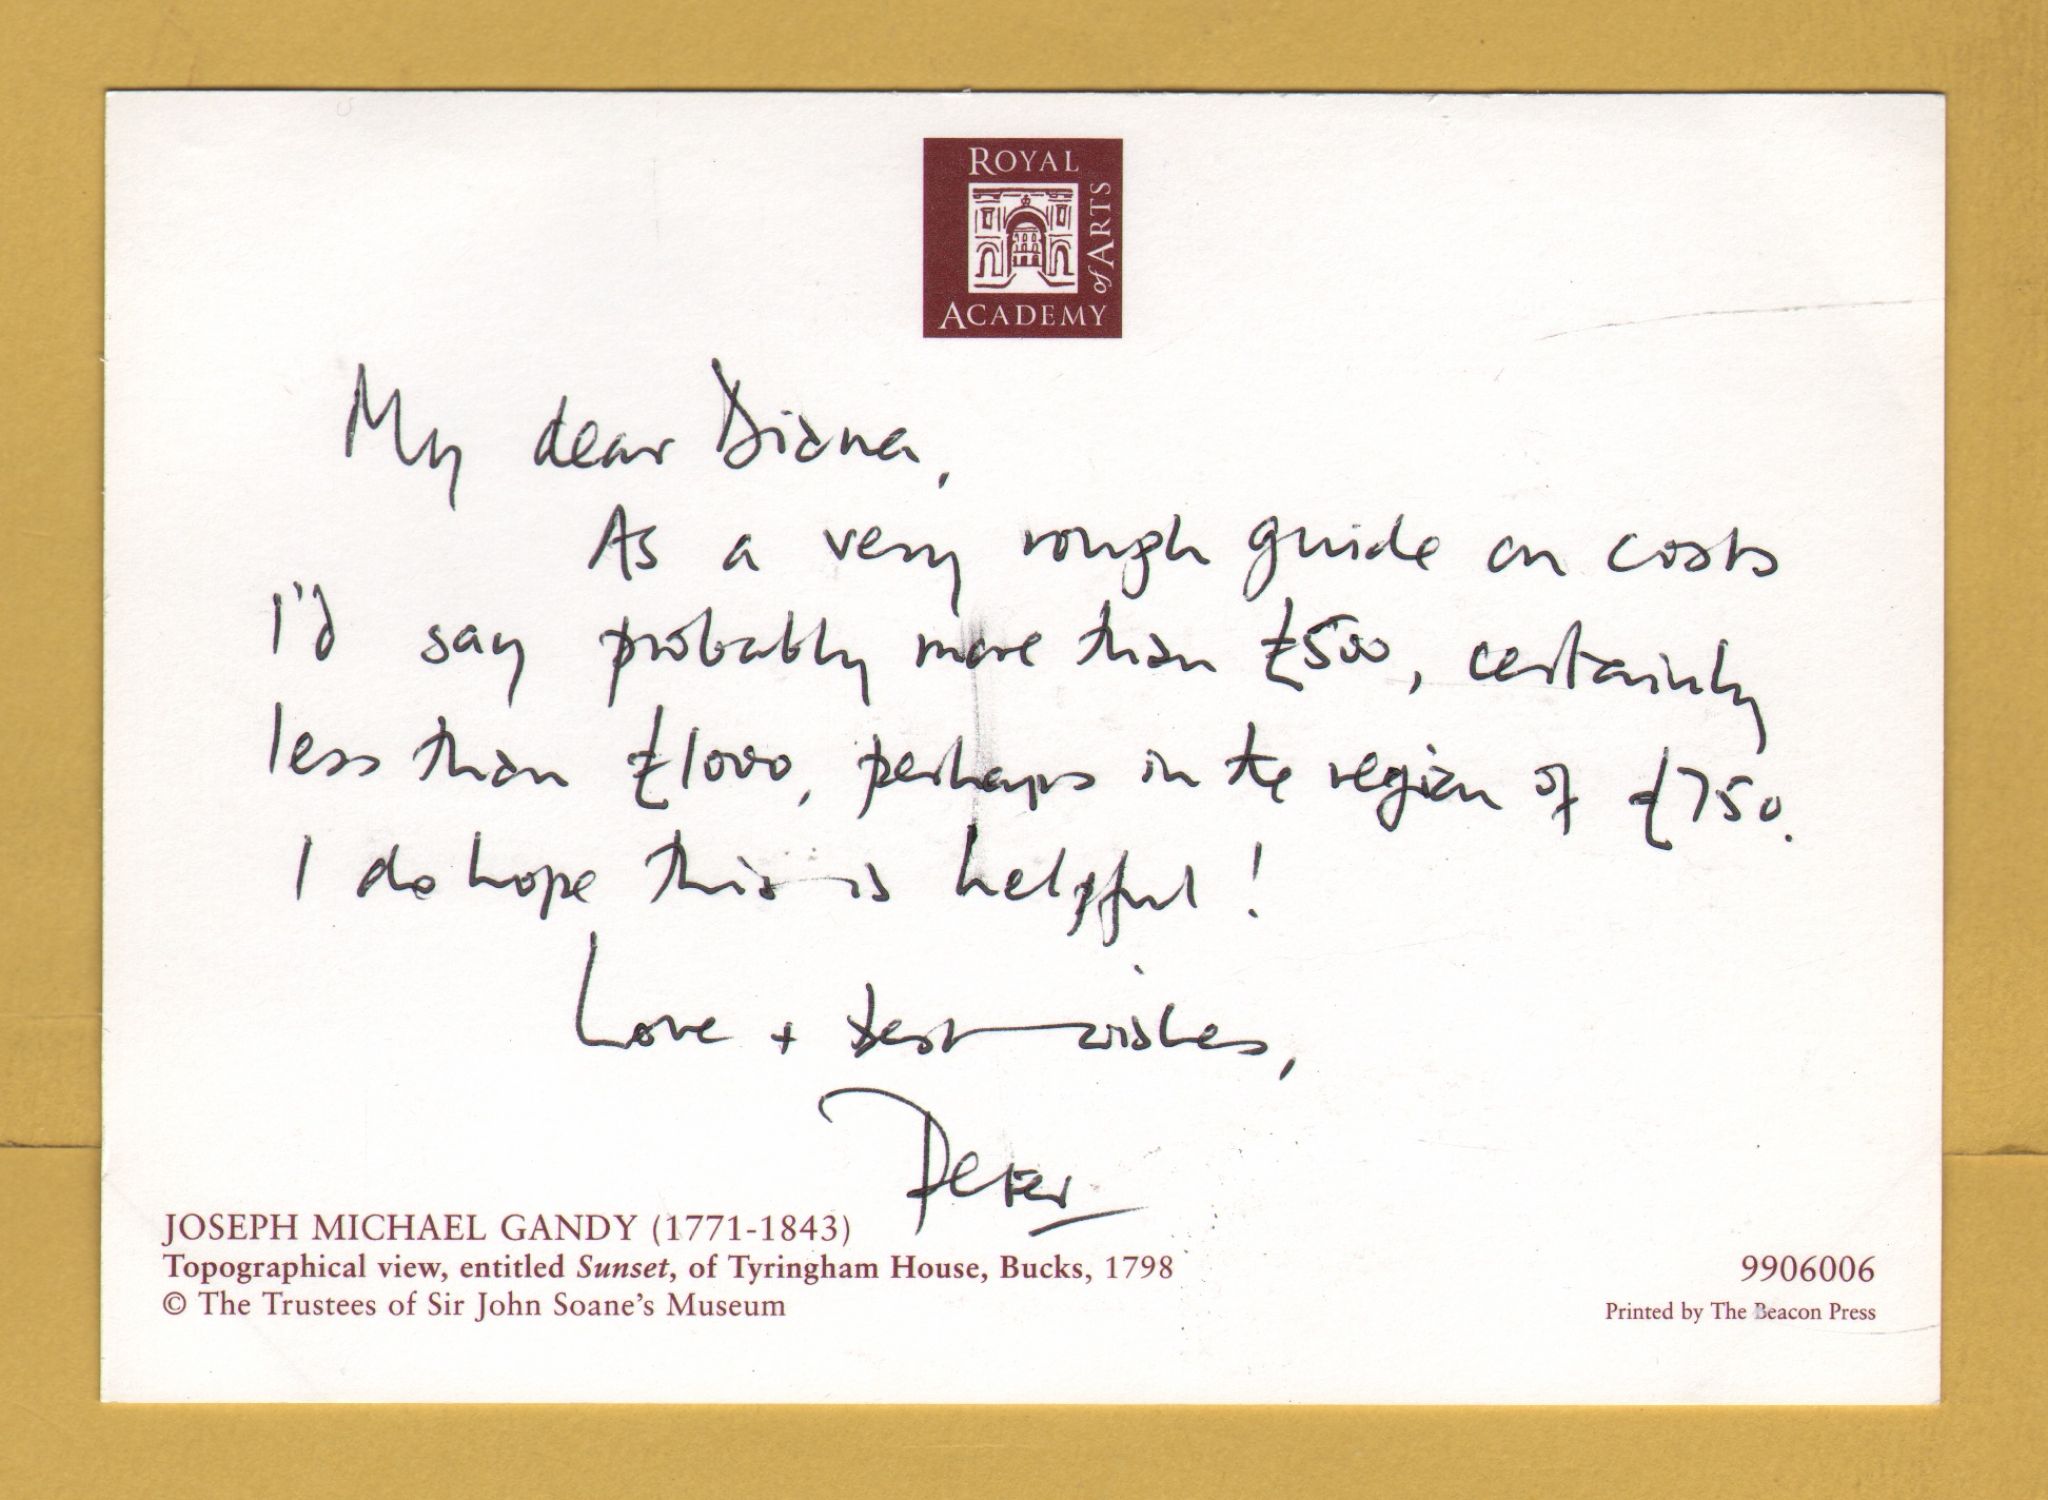 ROYAL
ACADEMY
of ARTS
My dear Diana,
As a very rough guide on costs
I'd say probably more than £500, certainly
less than £1000, perhaps in the region of £750.
I do hope this is helpful!
Love + best wishes,
Peter
JOSEPH MICHAEL GANDY (1771-1843)
Topographical view, entitled Sunset, of Tyringham House, Bucks, 1798
© The Trustees of Sir John Soane's Museum
9906006
Printed by The Beacon Press